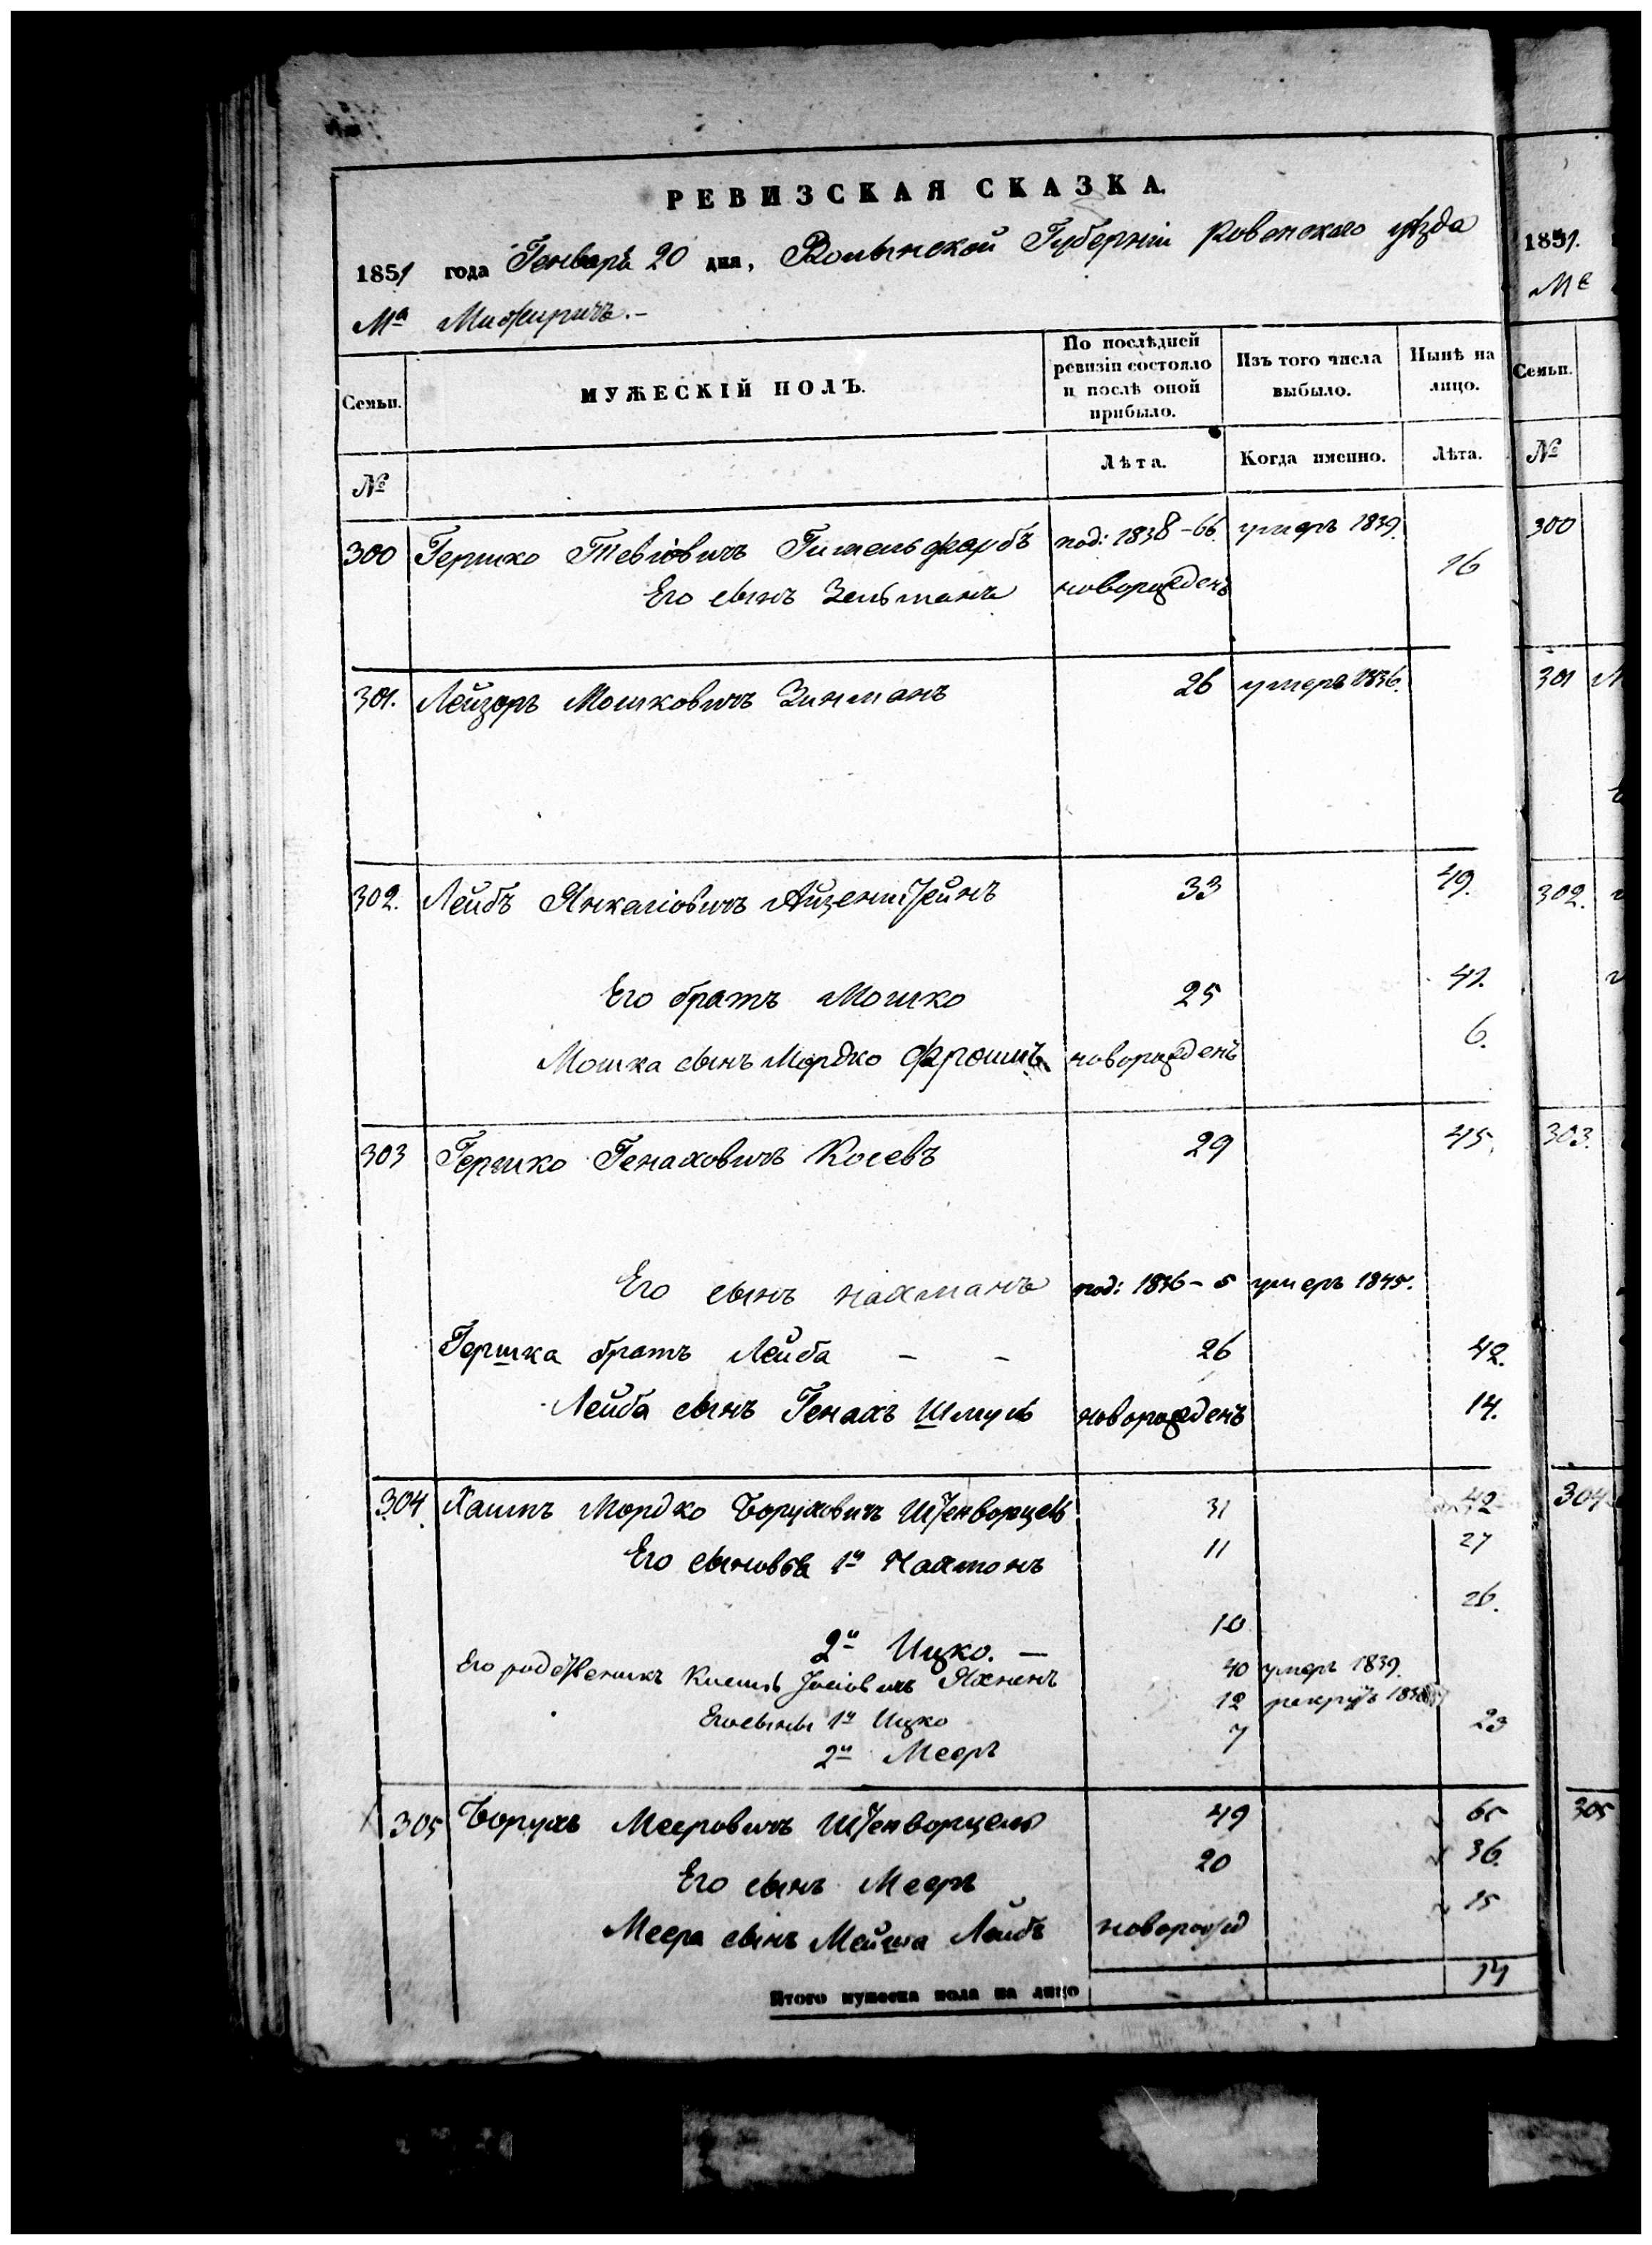 РЕВИЗСКАЯ СКАЗКА.
1851 года Генваря 20 дня, Волынской Губерніи Ровенскаго уѣзда
Мª Межирича.-
Семьи. МУЖЕСКІЙ ПОЛЪ. По послѣдней ревизіи состояло и послѣ оной прибыло. Изъ того числа выбыло. Нынѣ на лицо.
№ Лѣта. Когда именно. Лѣта.
300 Гершко Тевіовичъ Гительфарбъ под: 1838-66 умеръ 1839.
Его сынъ Зельманъ новорожденъ 16
301. Лейзоръ Мошковичъ Зинманъ 26 умеръ 1836.
302. Лейбъ Янкеліовичъ Айзенштейнъ 33 49.
Его братъ Мошко 25 41.
Мошка сынъ Мордко Фроимъ новорожденъ 6.
303 Гершко Генаховичъ Косевъ 29 45.
Его сынъ Нахманъ под: 1836-5 умеръ 1845.
Гершка братъ Лейба - - 26 42.
Лейба сынъ Генахъ Шмуль новорожденъ 14.
304. Хаимъ Мордко Боруховичъ Штенворцель 31 42
Его сыновья 1й Нахманъ 11 27
2й Ицко. — 10 26.
Его родственикъ Іосіовичъ 40 умеръ 1839.
Его сыны 1й Ицко 12 рекрутъ
2й Мееръ 7 23
305 Борухъ Мееровичъ Штенворцель 49 65
Его сынъ Мееръ 20 36.
Меера сынъ Мейша Лейбъ новорожд 15
Итого мужеска пола на лицо 14
1851.
Мª
Семьи.
№
300
301
302.
303.
304
305